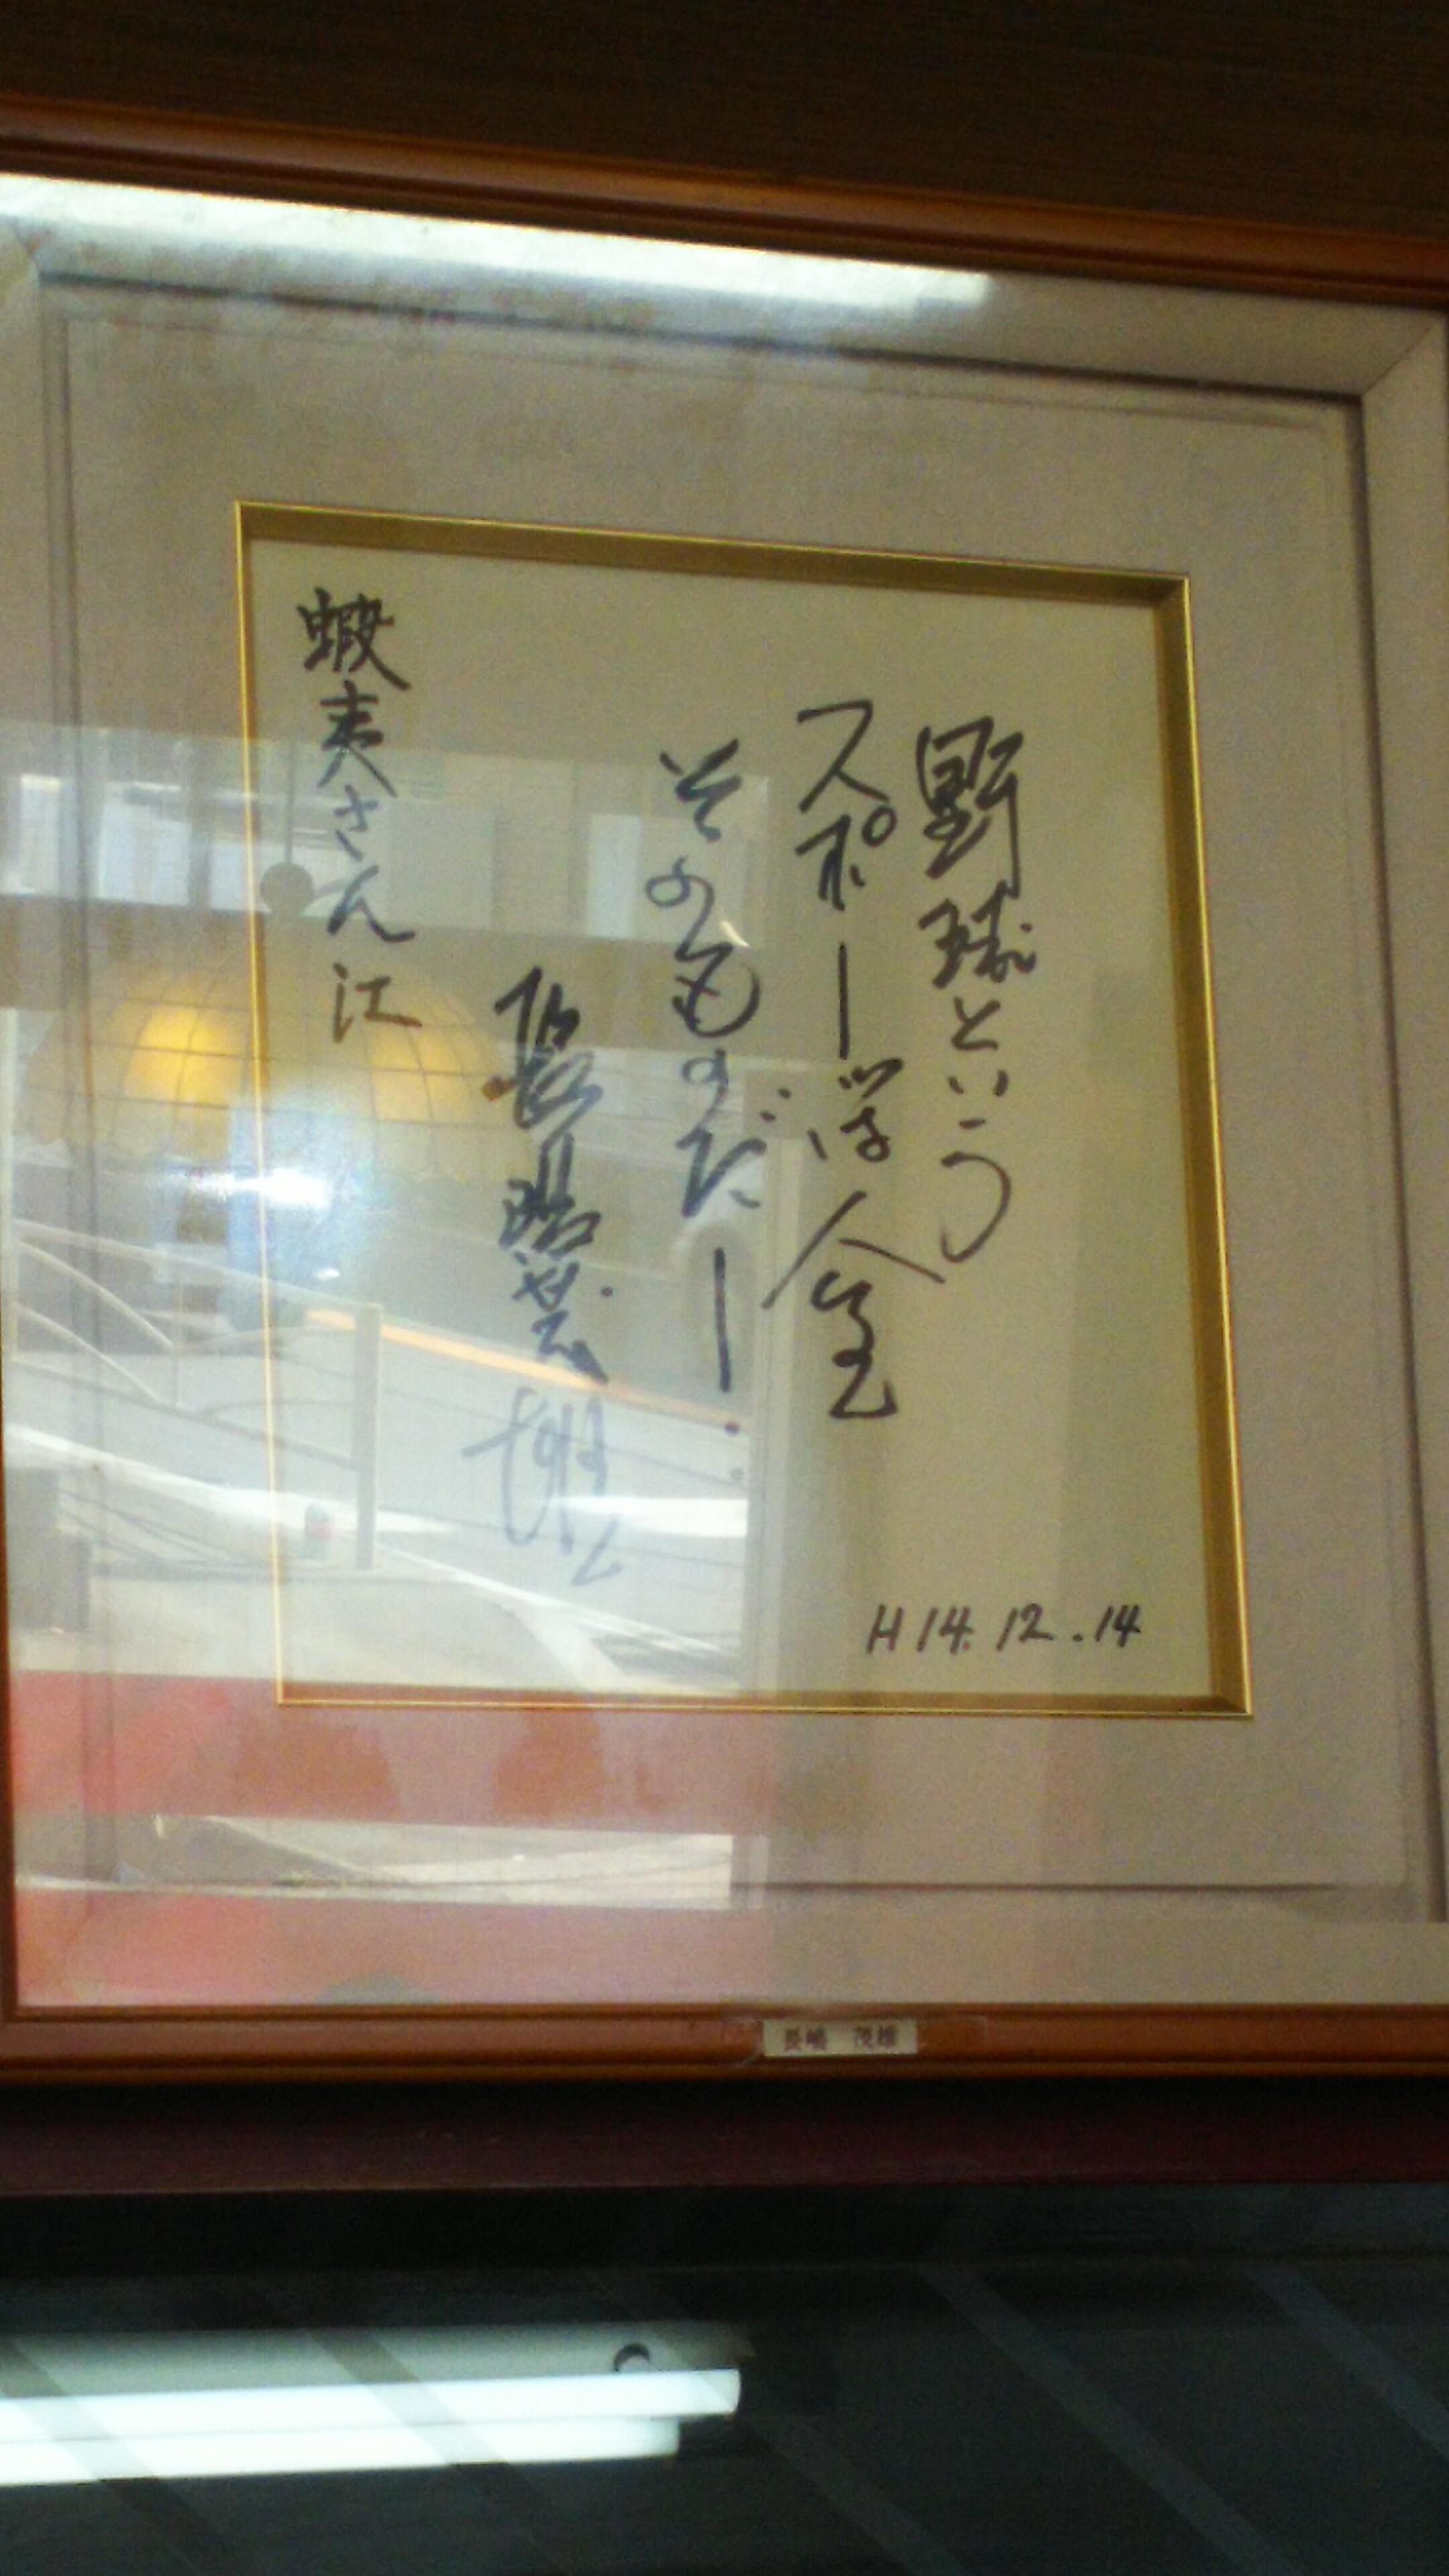 野球という
スポーツは人生
そのものだー..
長嶋茂雄
蝦夷さん江
H14.12.14
長嶋 茂雄